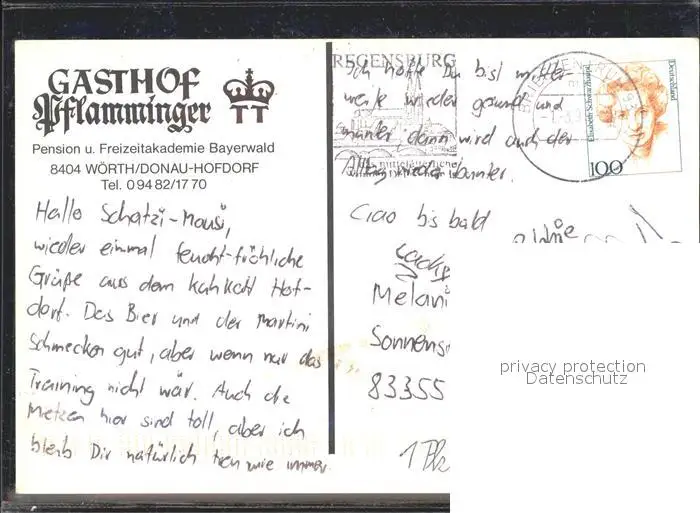 GASTHOF
Pflamminger
TT
Pension u. Freizeitakademie Bayerwald
8404 WÖRTH/DONAU-HOFDORF
Tel. 0 94 82/17 70
Hallo Schatzi-Mausi,
wieder einmal feucht-fröhliche
Grüße aus dem Hof-
dorf. Das Bier und der Martini
schmecken gut, aber wenn nur das
Training nicht wär. Auch die
Mietzen hier sind toll, aber ich
bleib Dir natürlich treu wie immer.
REGENSBURG
Ich hoffe Du bist mittler-
weile wieder gesund und
munter, dann wird auch der
Alltag wieder bunter.
mittelalterliche
Ciao bis bald
Melani
Sonnens
83355
Deutschland
Elisabeth Schwarzhaupt
100
privacy protection
Datenschutz